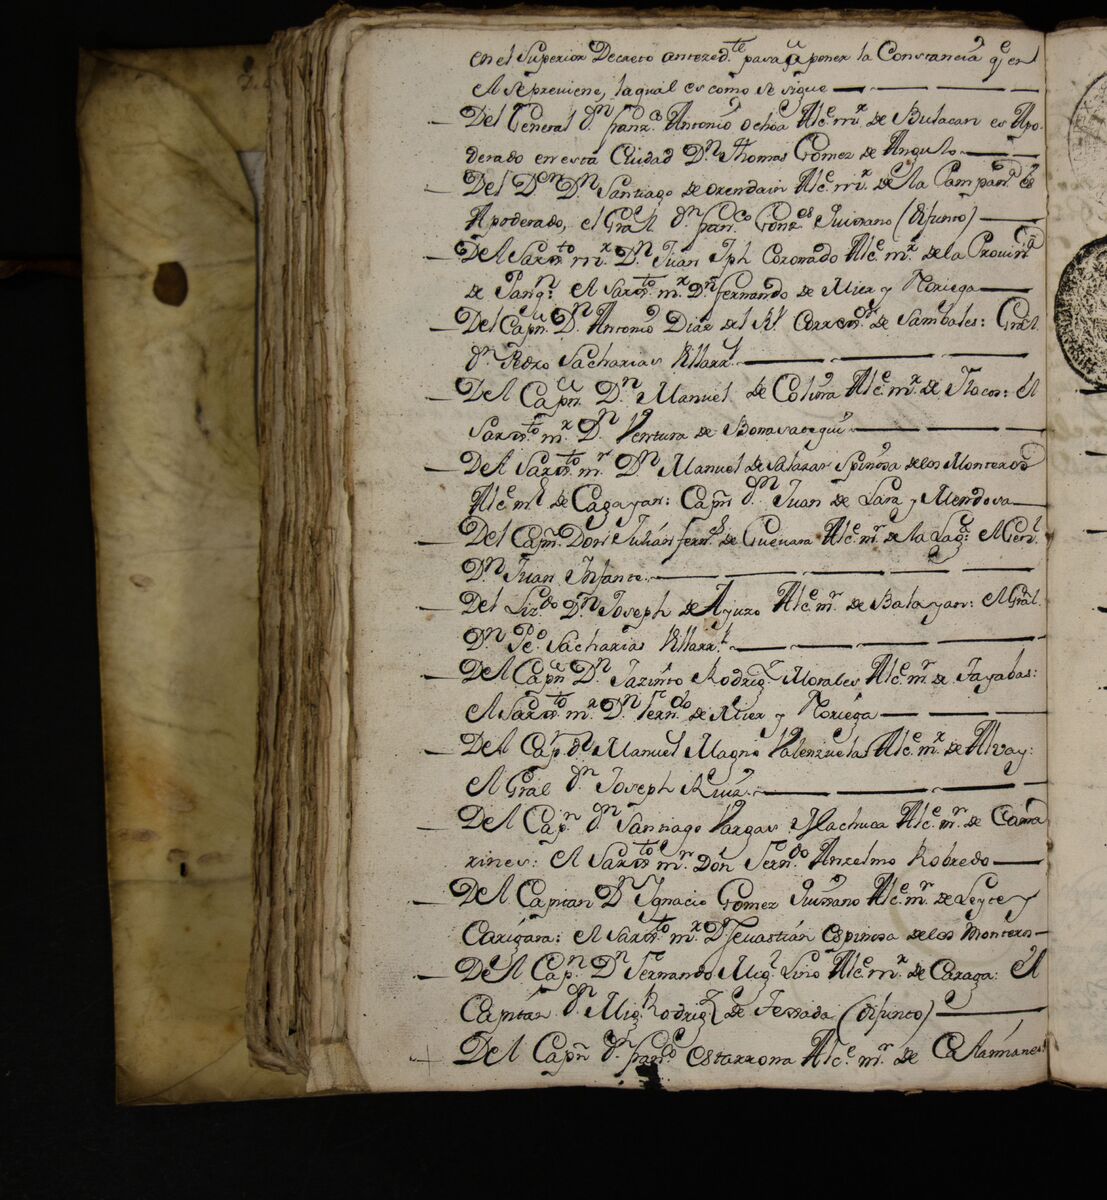 en el Superior Decreto antezed.te para poner la Constancia q.e en
el se previene, la qual es como se sigue
Del General d.n Franz.co Antonio Ochoa Alc.e m.r de Bulacan es Apo-
derado en esta Ciudad D.n Thomas Gomez de Angulo
Del D.n D.n Santiago de Orendain Alc.e m.r de la Pampan.a es
Apoderado, el Gral d.n Fran.co Gonz.es Quixano (difunto)
Del Sarx.to m.r D.n Juan Jph Coronado Alc.e m.r de la Provin.a
de Pang.n: el Sarx.to m.r D.n Fernando de Mier y Noriega
Del Cap.n D.n Antonio Diaz del R.l Correx.or de Sambales: Gral.
d.n Pedro Sacharias Villarr.l
Del Cap.n D.n Manuel de Alc.e m.r de Ilocos: el
Sarx.to m.r D.n Ventura de
Del Sarx.to m.r D.n Manuel de Salazar Spinosa de los Monteros
Alc.e m.r de Cagayan: Cap.n d.n Juan de Lara y Mendoza
Del Cap.n Don Julián Fern.z de Guevara Alc.e m.r de la Lag.a: el Gen.l
D.n Juan Infante
Del Liz.do D.n Joseph de Ayuzo Alc.e m.r de Balayan: el Gral.
D.n P.o Sacharias Villarr.l
Del Cap.n D.n Jazinto Rodrig.z Morales Alc.e m.r de Tayabas:
el Sarx.to m.r D.n Fern.do de Mier y Noriega
Del Cap.n d.n Manuel Magno Valenzuelas Alc.e m.r de Alvay:
el Gral d.n Joseph Ruiz
Del Cap.n d.n Santiago Vargas Machuca Alc.e m.r de Cama
rines: el Sarx.to m.r Don Fern.do Anzelmo Robredo
Del Capitan D.n Ignacio Gomez Quixano Alc.e m.r de Leyte y
Carigara: el Sarx.to m.r D.n Sevastián Espinosa de los Monteros
Del Cap.n D.n Fernando Mig.l Lino Alc.e m.r de Caraga: el
Capitan d.n Mig.l Rodrig.z de Texada (difunto)
Del Cap.n d.n Fran.co Estorxona Alc.e m.r de Calamianes: